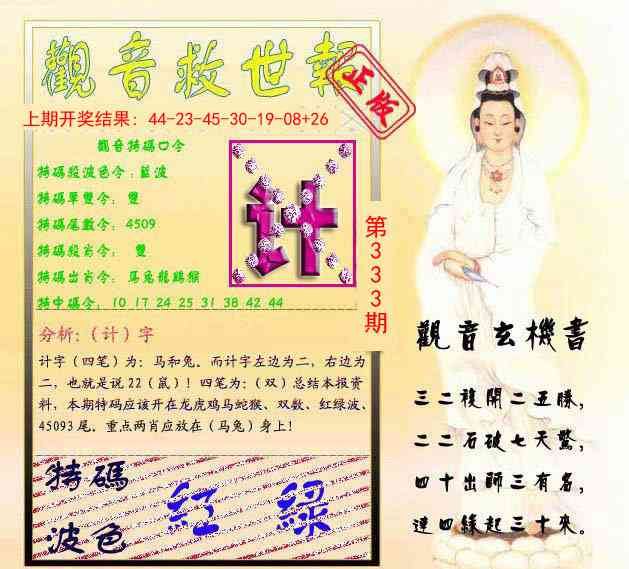 觀音救世報
正版
上期开奖结果：44-23-45-30-19-08+26
觀音特碼口令
特碼段波色令：藍波
特碼單雙令： 雙
特碼尾數令：4509
特碼段肖令： 雙
特碼出肖令：馬兔龍鷄猴
特中碼令：10 17 24 25 31 38 42 44
计
第333期
分析：（计）字
计字（四笔）为：马和兔。而计字左边为二，右边为
二，也就是说22（鼠）！四笔为：（双）总结本报资
料，本期特码应该开在龙虎鸡马蛇猴、双数、红绿波、
45093尾。重点两肖应放在（马兔）身上！
特碼
波色
紅 綠
觀音玄機書
三二複開二五勝，
二二石破七天驚，
四十出師三有名，
連四緣起三十來。